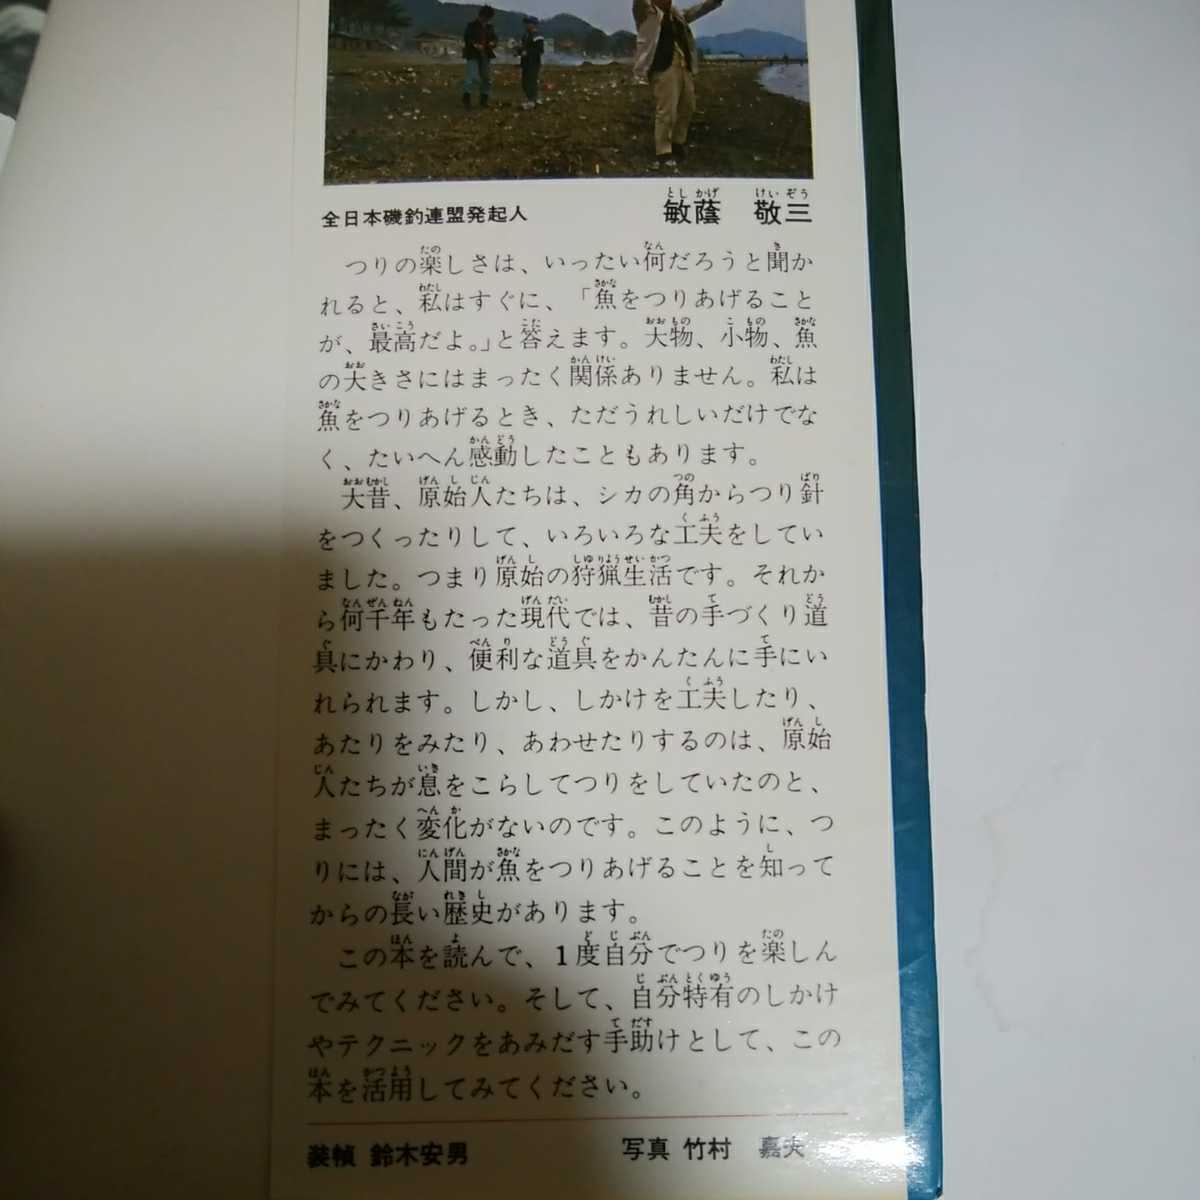 全日本磯釣連盟発起人　敏蔭　敬三
つりの楽しさは、いったい何だろうと聞か
れると、私はすぐに、「魚をつりあげること
が、最高だよ。」と答えます。大物、小物、魚
の大きさにはまったく関係ありません。私は
魚をつりあげるとき、ただうれしいだけでな
く、たいへん感動したこともあります。
大昔、原始人たちは、シカの角からつり針
をつくったりして、いろいろな工夫をしてい
ました。つまり原始の狩猟生活です。それか
ら何千年もたった現代では、昔の手づくり道
具にかわり、便利な道具をかんたんに手にい
れられます。しかし、しかけを工夫したり、
あたりをみたり、あわせたりするのは、原始
人たちが息をこらしてつりをしていたのと、
まったく変化がないのです。このように、つ
りには、人間が魚をつりあげることを知って
からの長い歴史があります。
この本を読んで、1度自分でつりを楽しん
でみてください。そして、自分特有のしかけ
やテクニックをあみだす手助けとして、この
本を活用してみてください。
装幀 鈴木安男　写真 竹村　嘉夫